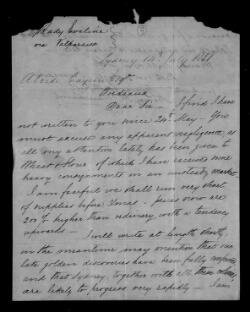 p Lady Eveline
via Valparaiso
Sydney 14 July 1851
Alfred Esqre.
Bordeaux
Dear Sir — I find I have
not written to you since 24 May — You
must excuse any apparent negligence, as
all my attention lately has been given to
Wheat & Flour of which I have received some
heavy consignments on an unsteady market
I am fearful we shall run very short
of supplies before Xmas — prices now are
200% higher than ordinary, with a tendency
upwards — I will write at length shortly,
in the meantime may mention that our
late golden discoveries have been fully confirmed
and that Sydney, together with all the colony
are likely to progress very rapidly — I am